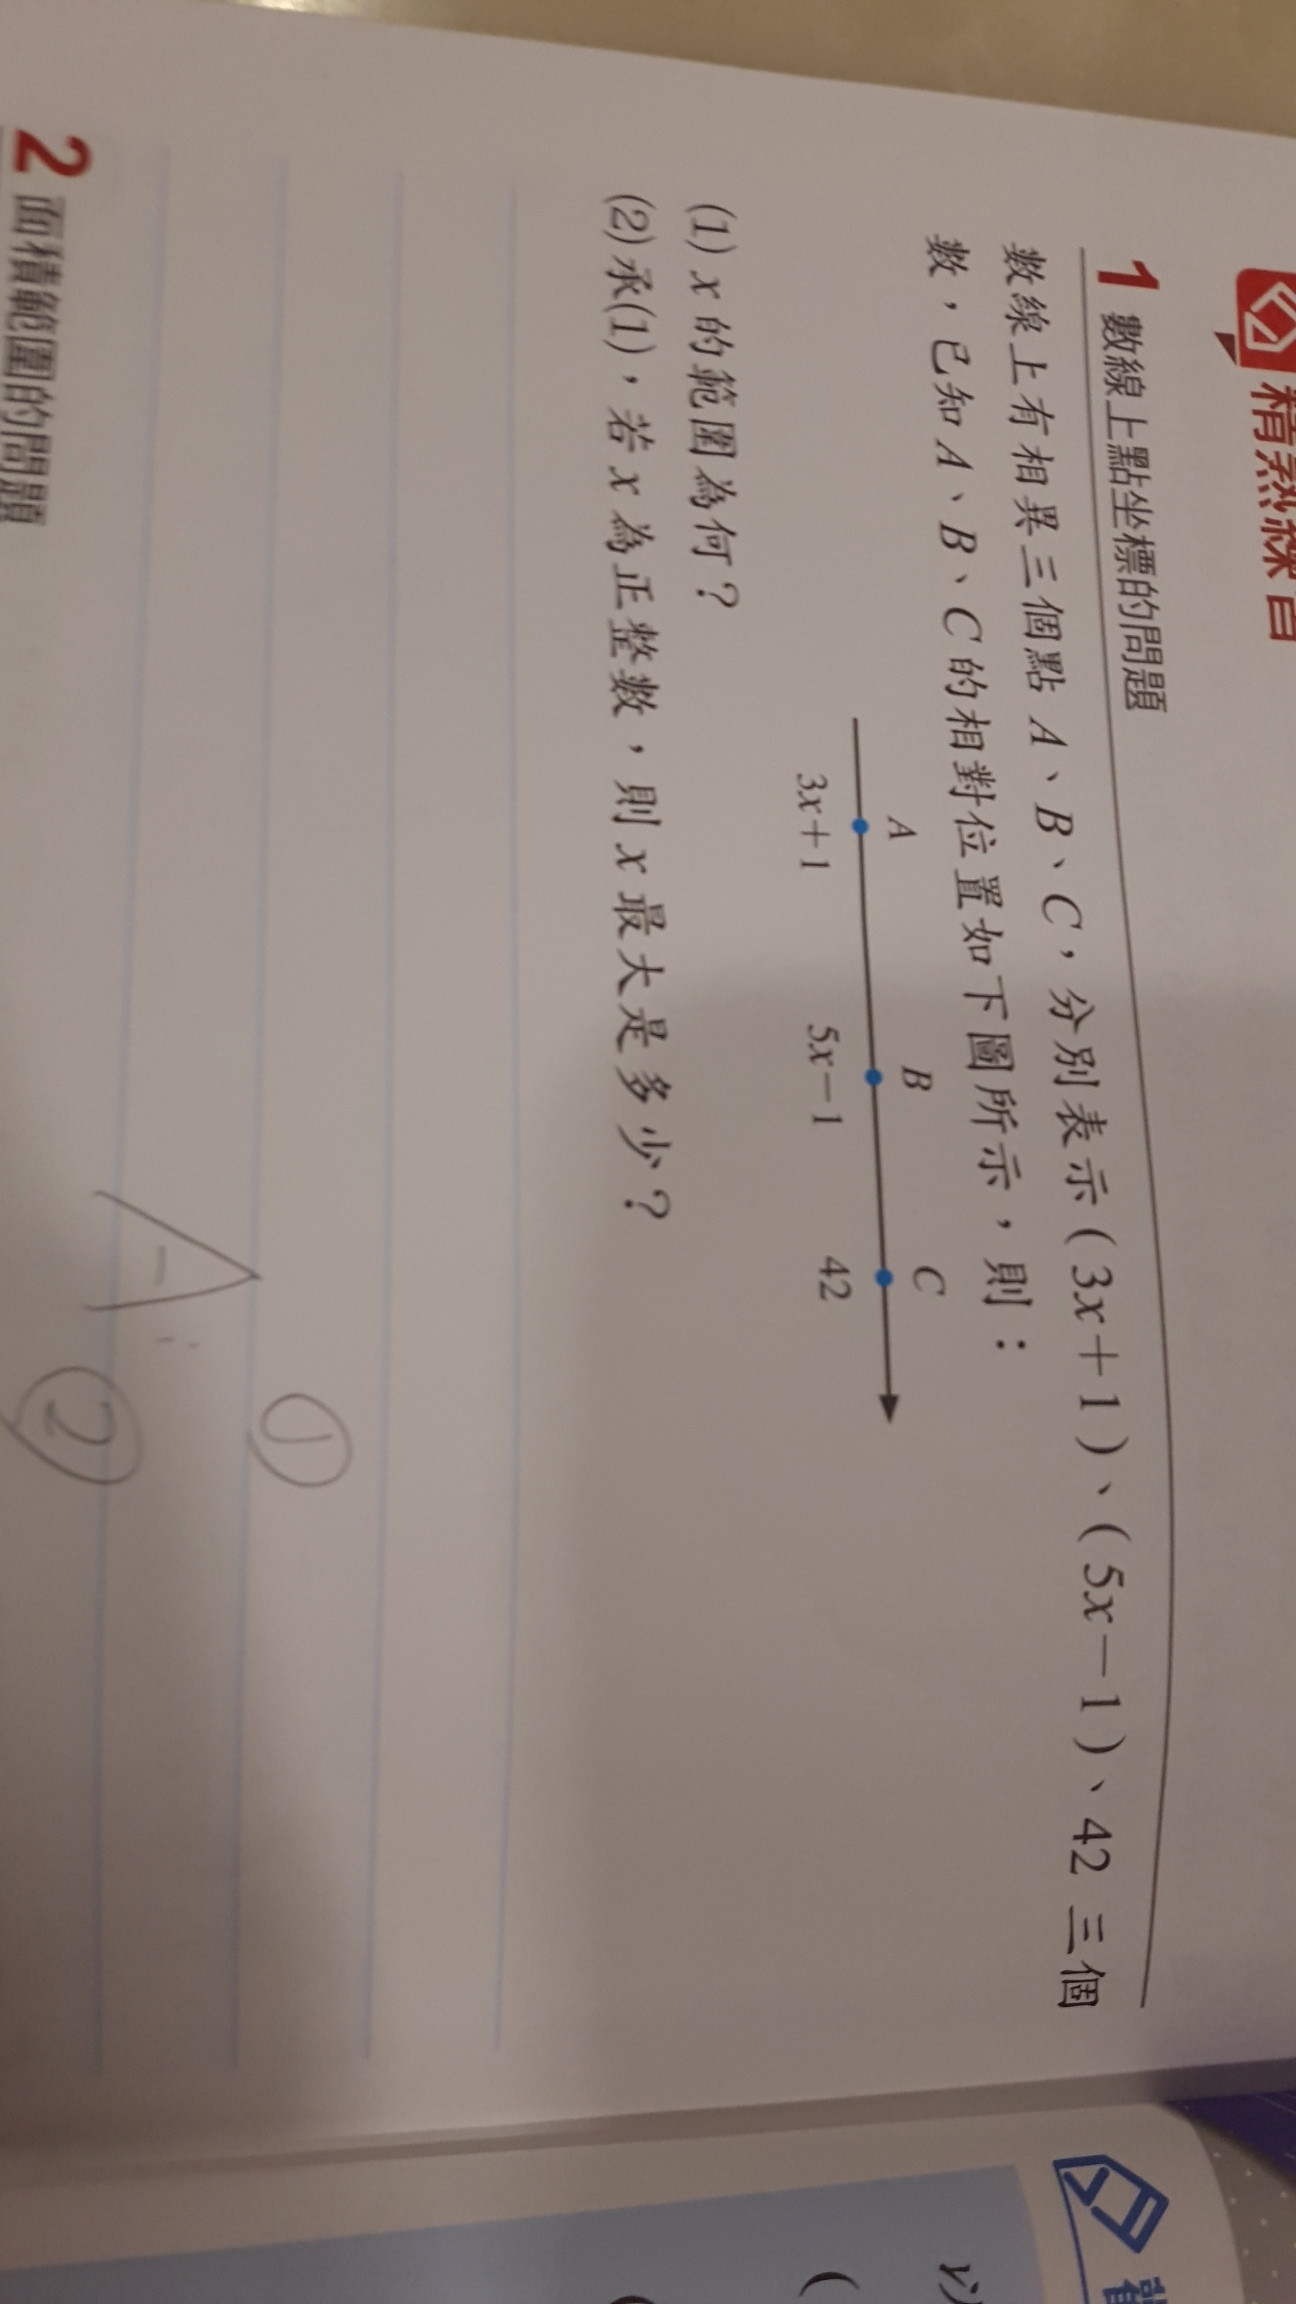 精熟練習
1 數線上點坐標的問題
數線上有相異三個點 A、B、C，分別表示(3x＋1)、(5x－1)、42 三個
數，已知 A、B、C 的相對位置如下圖所示，則：
A B C
3x＋1 5x－1 42
(1) x 的範圍為何？
(2) 承(1)，若 x 為正整數，則 x 最大是多少？
①
A:
②
2 面積範圍的問題